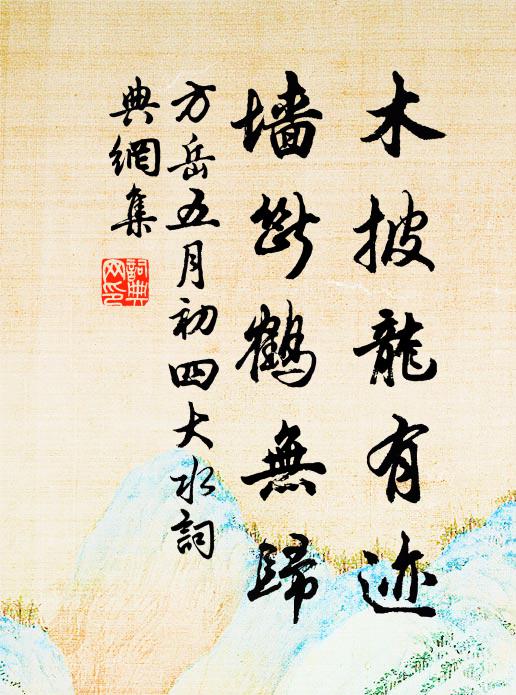 木披龍有迹
墙斷鹤無歸
方岳五月初四大水詞
典網集
詞典
网印